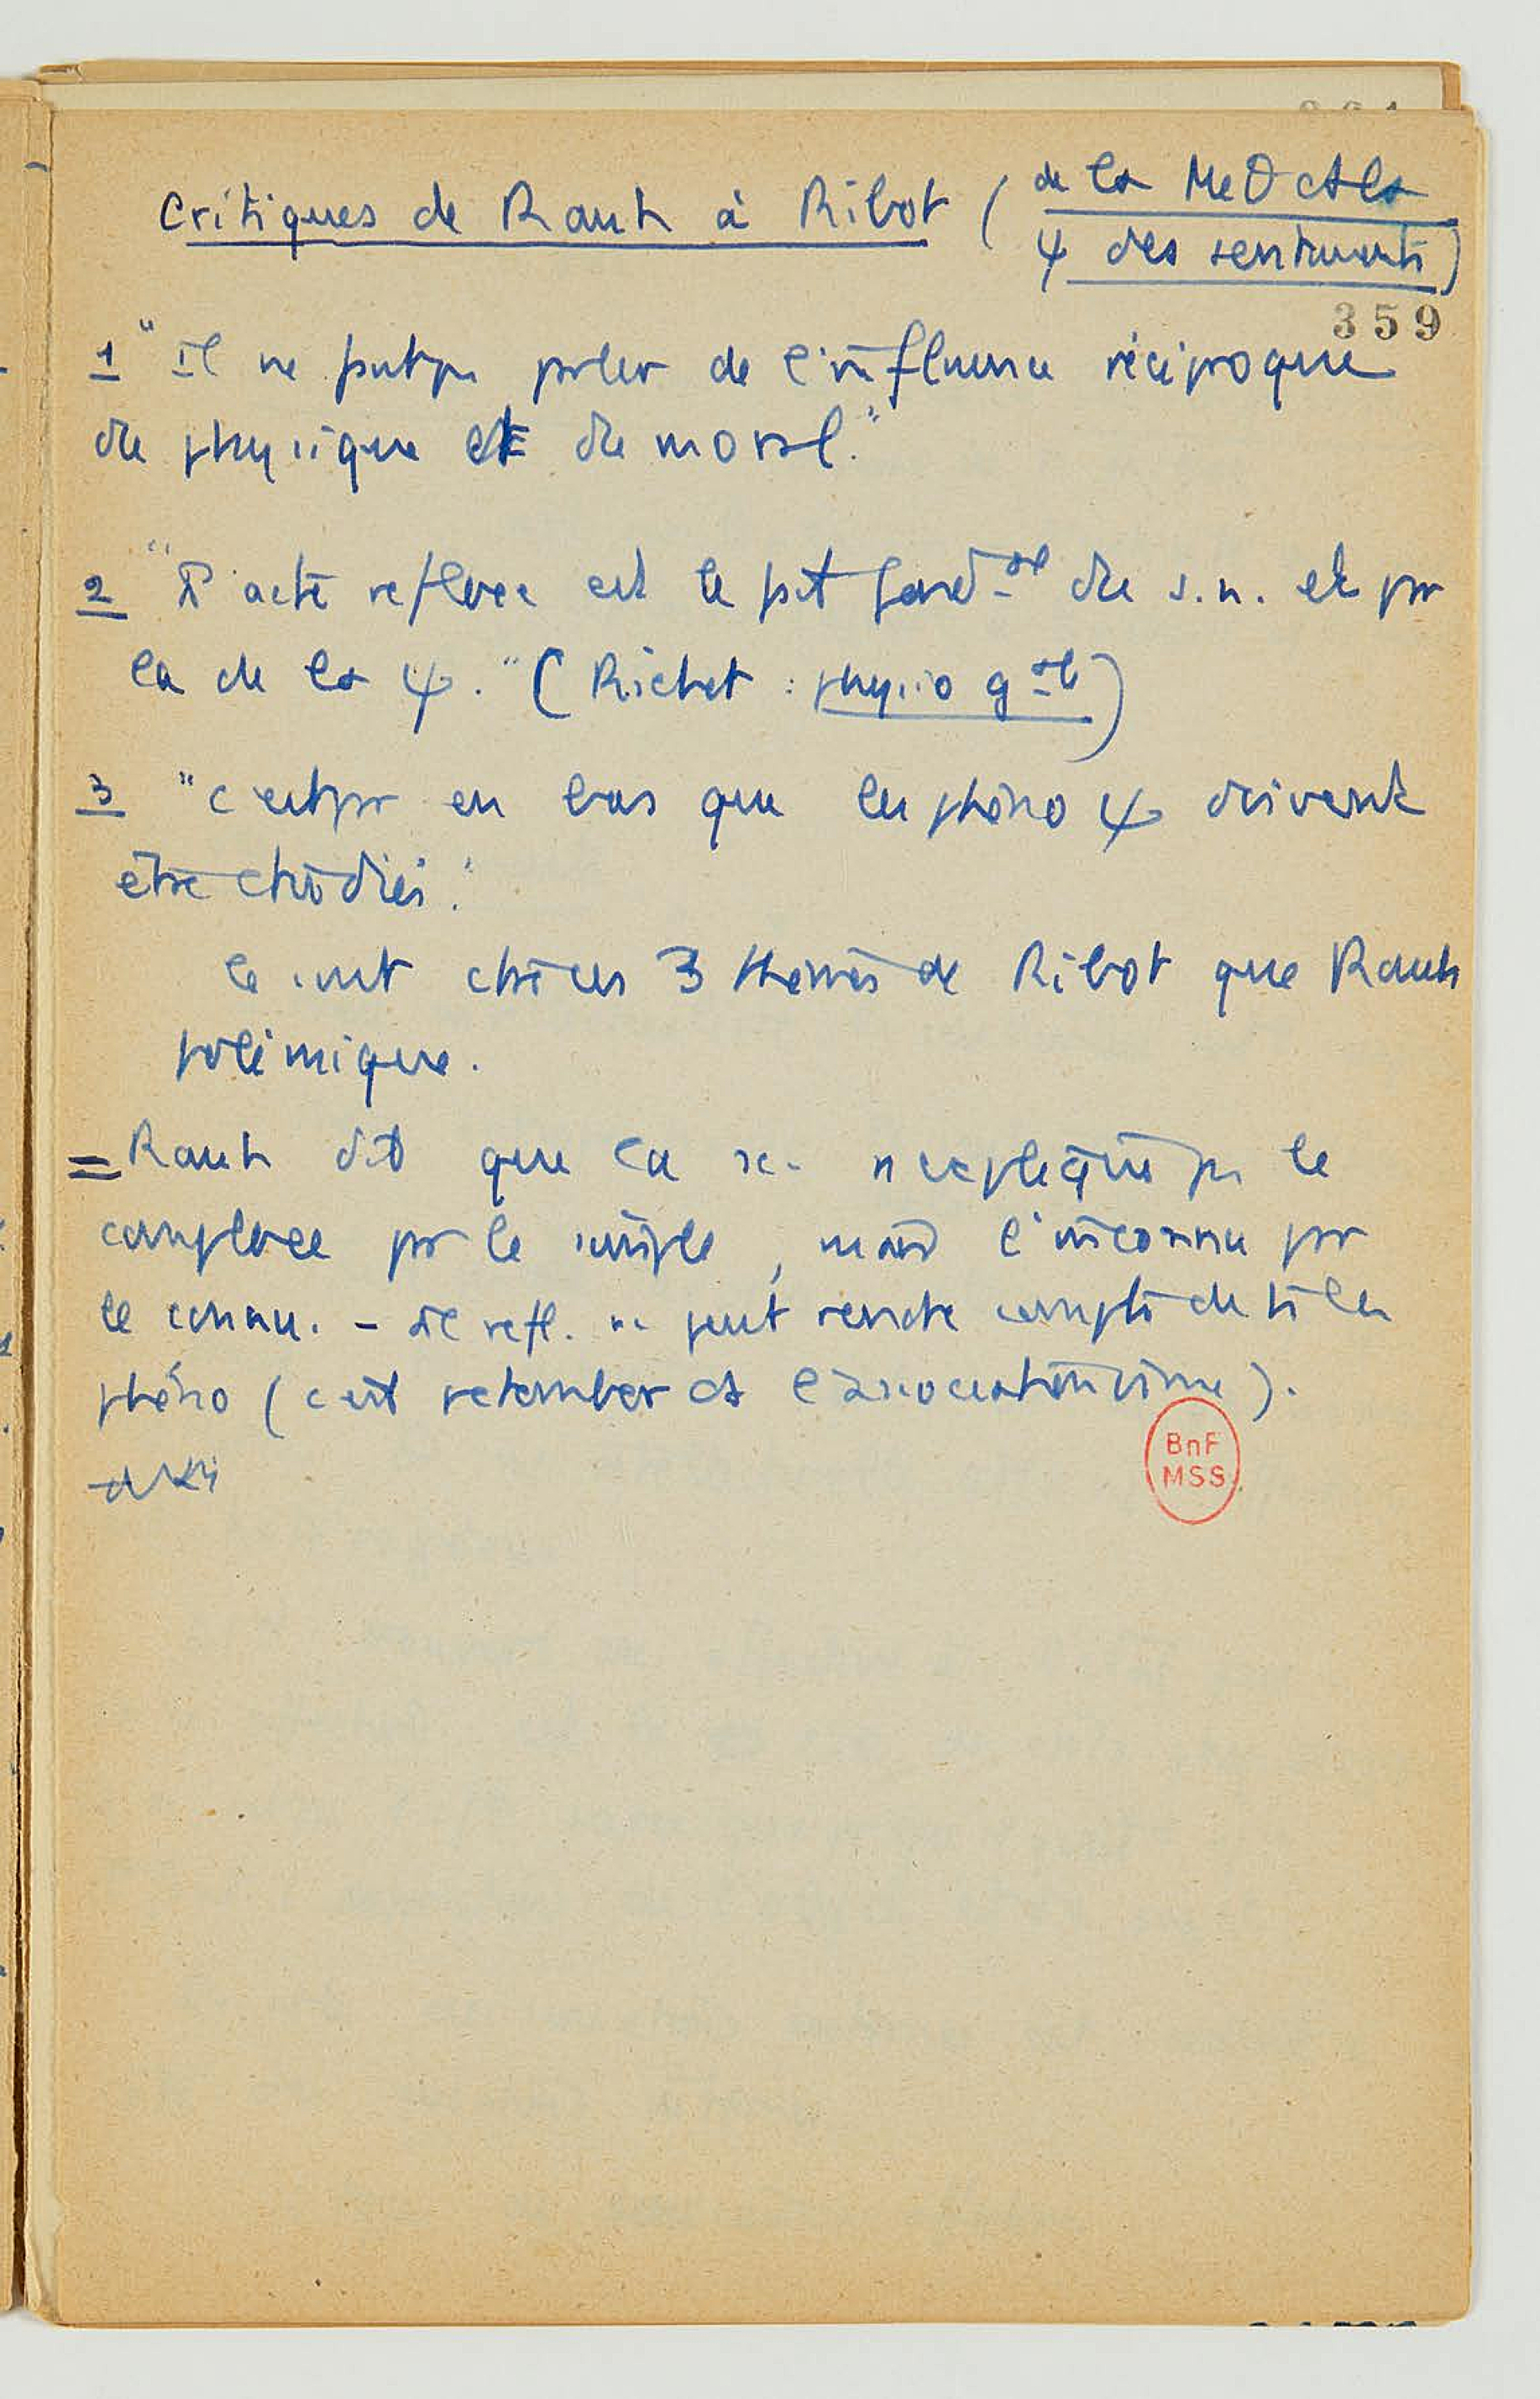 Critiques de Rauh à Ribot (de la MeΘ ds la
ψ des sentiments)
359
1 "Il ne faut pas parler de l'influence réciproque
du physique et du moral."
2 "L'acte reflexe est le pt fond-al du s.n. et par
là de la ψ." (Richet : physio g-ale)
3 "C'est par en bas que les phéno ψ doivent
être étudiés."
Ce sont ces 3 thèmes de Ribot que Rauh
polémique.
= Rauh dit que la sc. n'explique pas le
complexe par le simple, mais l'inconnu par
le connu. - Le refl. ne peut rendre compte de ts les
phéno (c'est retomber ds l'associationnisme).
BnF
MSS